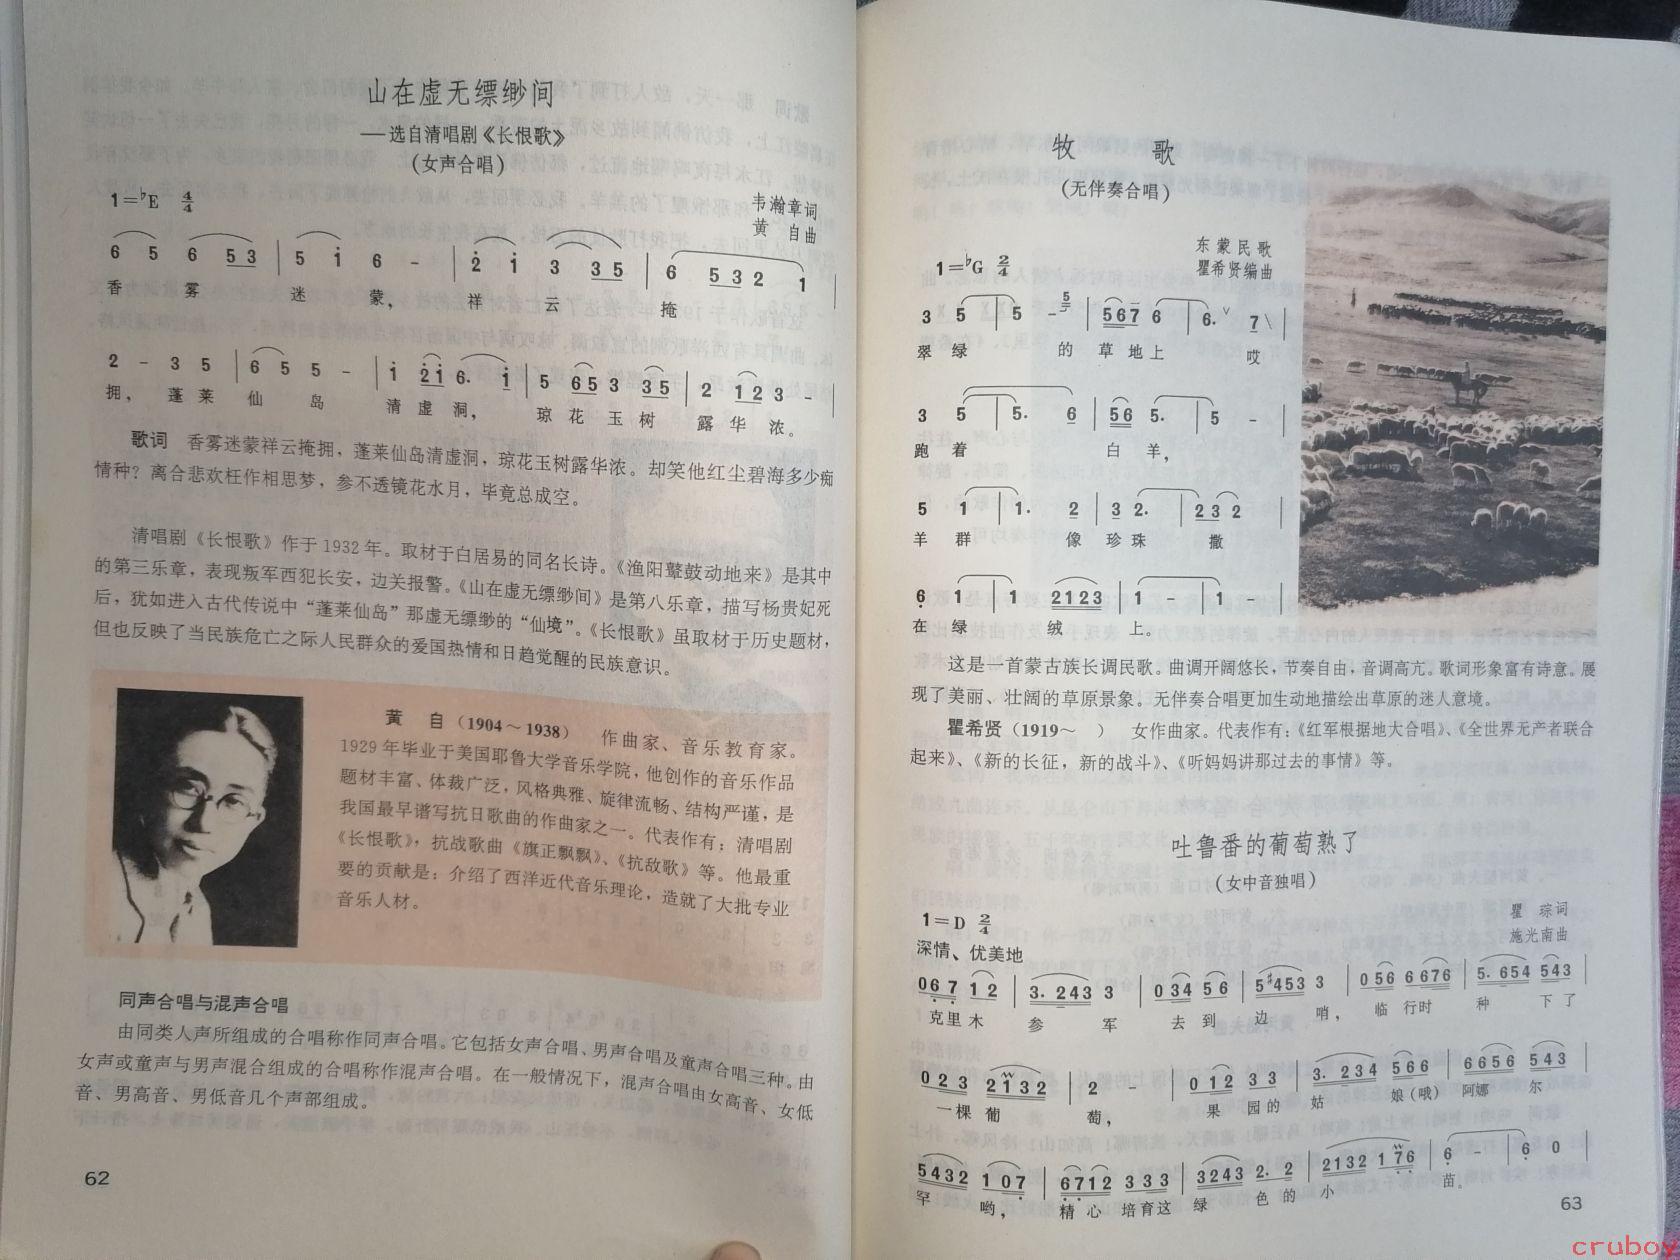 山在虚无缥缈间
——选自清唱剧《长恨歌》
(女声合唱)
1=♭E 4/4
韦瀚章词
黄 自曲
6 5 6 5 3 | 5 i 6 - | 2 i 3 3 5 | 6 5 3 2 1 |
香 雾 迷 蒙， 祥 云 掩
2 - 3 5 | 6 5 5 - | i 2 i 6. i | 5 6 5 3 3 5 | 2 1 2 3 - |
拥， 蓬 莱 仙 岛 清 虚 洞， 琼 花 玉 树 露 华 浓。
歌词 香雾迷蒙祥云掩拥，蓬莱仙岛清虚洞，琼花玉树露华浓。却笑他红尘碧海多少痴
情种？离合悲欢枉作相思梦，参不透镜花水月，毕竟总成空。
清唱剧《长恨歌》作于1932年。取材于白居易的同名长诗。《渔阳鼙鼓动地来》是其中
的第三乐章，表现叛军西犯长安，边关报警。《山在虚无缥缈间》是第八乐章，描写杨贵妃死
后，犹如进入古代传说中“蓬莱仙岛”那虚无缥缈的“仙境”。《长恨歌》虽取材于历史题材，
但也反映了当民族危亡之际人民群众的爱国热情和日趋觉醒的民族意识。
黄 自（1904～1938） 作曲家、音乐教育家。
1929年毕业于美国耶鲁大学音乐学院，他创作的音乐作品
题材丰富、体裁广泛，风格典雅、旋律流畅、结构严谨，是
我国最早谱写抗日歌曲的作曲家之一。代表作有：清唱剧
《长恨歌》，抗战歌曲《旗正飘飘》、《抗敌歌》等。他最重
要的贡献是：介绍了西洋近代音乐理论，造就了大批专业
音乐人材。
同声合唱与混声合唱
由同类人声所组成的合唱称作同声合唱。它包括女声合唱、男声合唱及童声合唱三种。由
女声或童声与男声混合组成的合唱称作混声合唱。在一般情况下，混声合唱由女高音、女低
音、男高音、男低音几个声部组成。
62
牧 歌
(无伴奏合唱)
东蒙民歌
瞿希贤编曲
1=♭G 2/4
3 5 | 5 - 5 | 5 6 7 6 | 6. ∨ 7 \ |
翠 绿 的 草 地 上 哎
3 5 | 5. 6 | 5 6 5. | 5 - |
跑 着 白 羊，
5 1 | 1. 2 | 3 2. | 2 3 2 |
羊 群 像 珍 珠 撒
6 1 | 1 2 1 2 3 | 1 - | 1 - |
在 绿 绒 上。
这是一首蒙古族长调民歌。曲调开阔悠长，节奏自由，音调高亢。歌词形象富有诗意。展
现了美丽、壮阔的草原景象。无伴奏合唱更加生动地描绘出草原的迷人意境。
瞿希贤（1919～ ） 女作曲家。代表作有：《红军根据地大合唱》、《全世界无产者联合
起来》、《新的长征，新的战斗》、《听妈妈讲那过去的事情》等。
吐鲁番的葡萄熟了
(女中音独唱)
瞿 琮词
施光南曲
1=D 2/4
深情、优美地
0 6 7 1 2 | 3. 2 4 3 3 | 0 3 4 5 6 | 5 #4 5 3 3 | 0 5 6 6 6 7 6 | 5. 6 5 4 5 4 3 |
克里木 参 军 去 到 边 哨， 临 行时 种 下了
0 2 3 2 1 3 2 | 2 - | 0 1 2 3 3 | 3. 2 3 4 5 6 6 | 6 6 5 6 5 4 3 |
一棵 葡 萄， 果 园的 姑 娘(哦) 阿娜 尔
5 4 3 2 1 0 7 | 6 7 1 2 3 3 3 | 3 2 4 3 2. 2 | 2 1 3 2 1 7 6 | 6 - | 6 0 |
罕 哟， 精 心 培育这 绿 色 的 小 苗。
63
cruboy